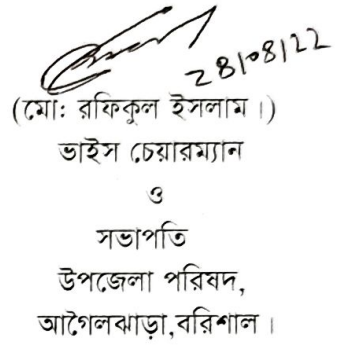 28/08/22
(মো: রফিকুল ইসলাম।)
ভাইস চেয়ারম্যান
ও
সভাপতি
উপজেলা পরিষদ,
আগৈলঝাড়া,বরিশাল।